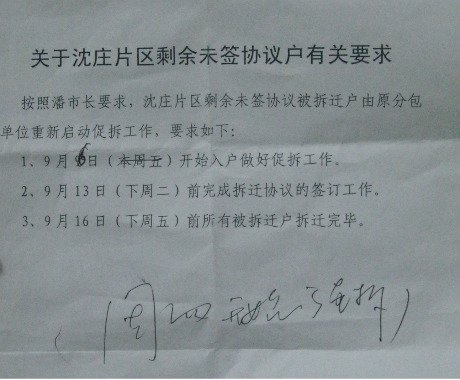 关于沈庄片区剩余未签协议户有关要求
按照潘市长要求，沈庄片区剩余未签协议被拆迁户由原分包
单位重新启动促拆工作，要求如下：
1、9月6日（本周五）开始入户做好促拆工作。
2、9月13日（下周二）前完成拆迁协议的签订工作。
3、9月16日（下周五）前所有被拆迁户拆迁完毕。
（周四 强拆）